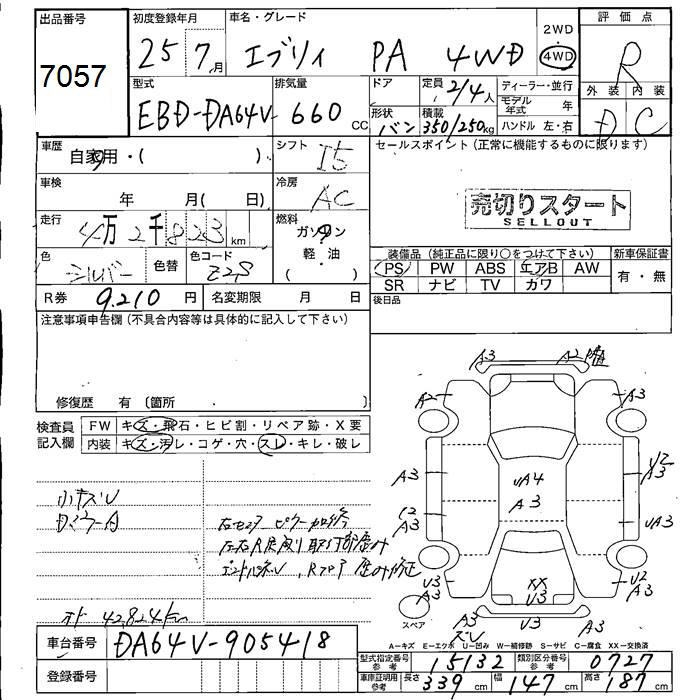 出品番号 初度登録年月 車名・グレード 2WD 評価点
7057 25 7月 エブリイ PA 4WD 4WD R
型式 排気量 ドア 定員 2/4人 ディーラー・並行 外装 内装
EBD-DA64V- 660 CC 形状 バン 積載 350/250kg モデル年式 年 ハンドル 左・右 D C
車歴 自家用・( ) シフト I5 セールスポイント(正常に機能するものに限ります)
車検 年 月( 日) 冷房 AC 売切りスタート
SELLOUT
走行 4万2千823 km 燃料 ガソリン
軽・油
( )
装備品(純正品に限り○をつけて下さい) 新車保証書
色 シルバー 色替 色コード Z2S PS PW ABS エアB AW 有・無
SR ナビ TV カワ
R券 9,210円 名変期限 月 日 後日品
注意事項申告欄(不具合内容等は具体的に記入して下さい)
修復歴 有〔箇所 〕
検査員記入欄 FW キズ・飛石・ヒビ割・リペア跡・X要
内装 キズ・汚レ・コゲ・穴・スレ・キレ・破レ
A3 A2
A2 A3
A3 UA4 A3 U2 A3
C2 A3 UA3
U3 A3 XX U3 U2 A3
スペア A3 U3 A3
小キズU
オド 42,824km
A-キズ E-エクボ U-凹み W-補修跡 S-サビ C-腐食 XX-交換済
車台番号 DA64V-905418
登録番号
型式指定番号 参考 15132 類別区分番号 参考 0727
車庫証明用 参考 長さ 339cm 幅 147cm 高さ 187cm